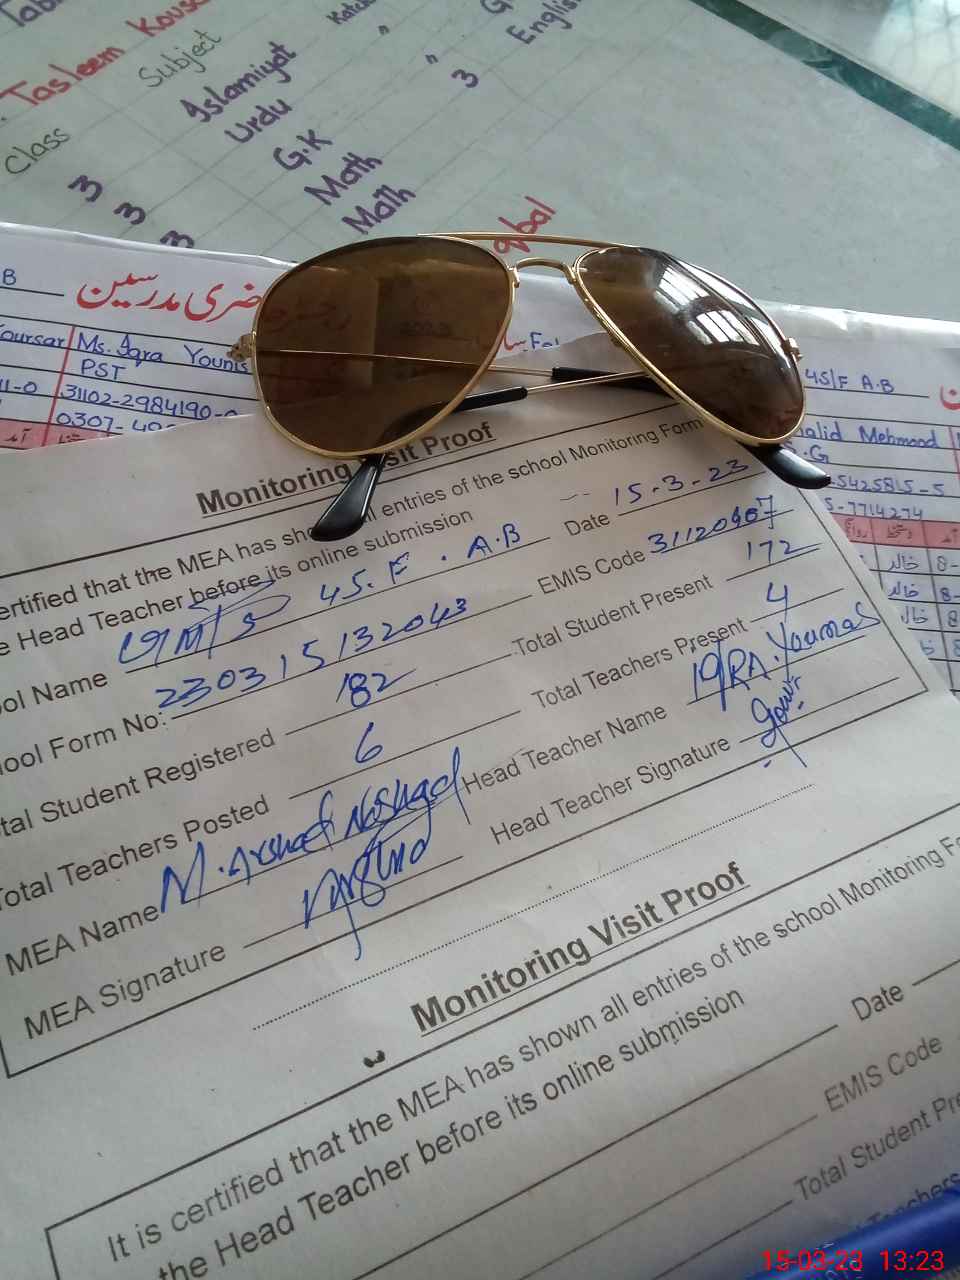 Tasleem Kous
Class Subject
3 Islamiyat
3 Urdu
3 G.K
Math
Math
3 English
qbal
B
ضری مدرسین
Coursar Ms. Iqra Younis
PST
11-0 31102-2984190-
0307-
45/F A.B
halid Mehmood
.G
5425815-5
5-7714274
خالد 8-
خالد 8-
Monitoring Visit Proof
ertified that the MEA has sho all entries of the school Monitoring Form
e Head Teacher before its online submission
Date 15-3-23
ool Name 45.F.A.B EMIS Code 31120407
ool Form No: 230315132043 Total Student Present 172
tal Student Registered 182 Total Teachers Present 4
Total Teachers Posted 6 Head Teacher Name IQRA. Younas
MEA Name M. Arshad Noshad Head Teacher Signature
MEA Signature
Monitoring Visit Proof
It is certified that the MEA has shown all entries of the school Monitoring F
the Head Teacher before its online submission
Date
EMIS Code
Total Student Pre
Teachers
15-03-23 13:23